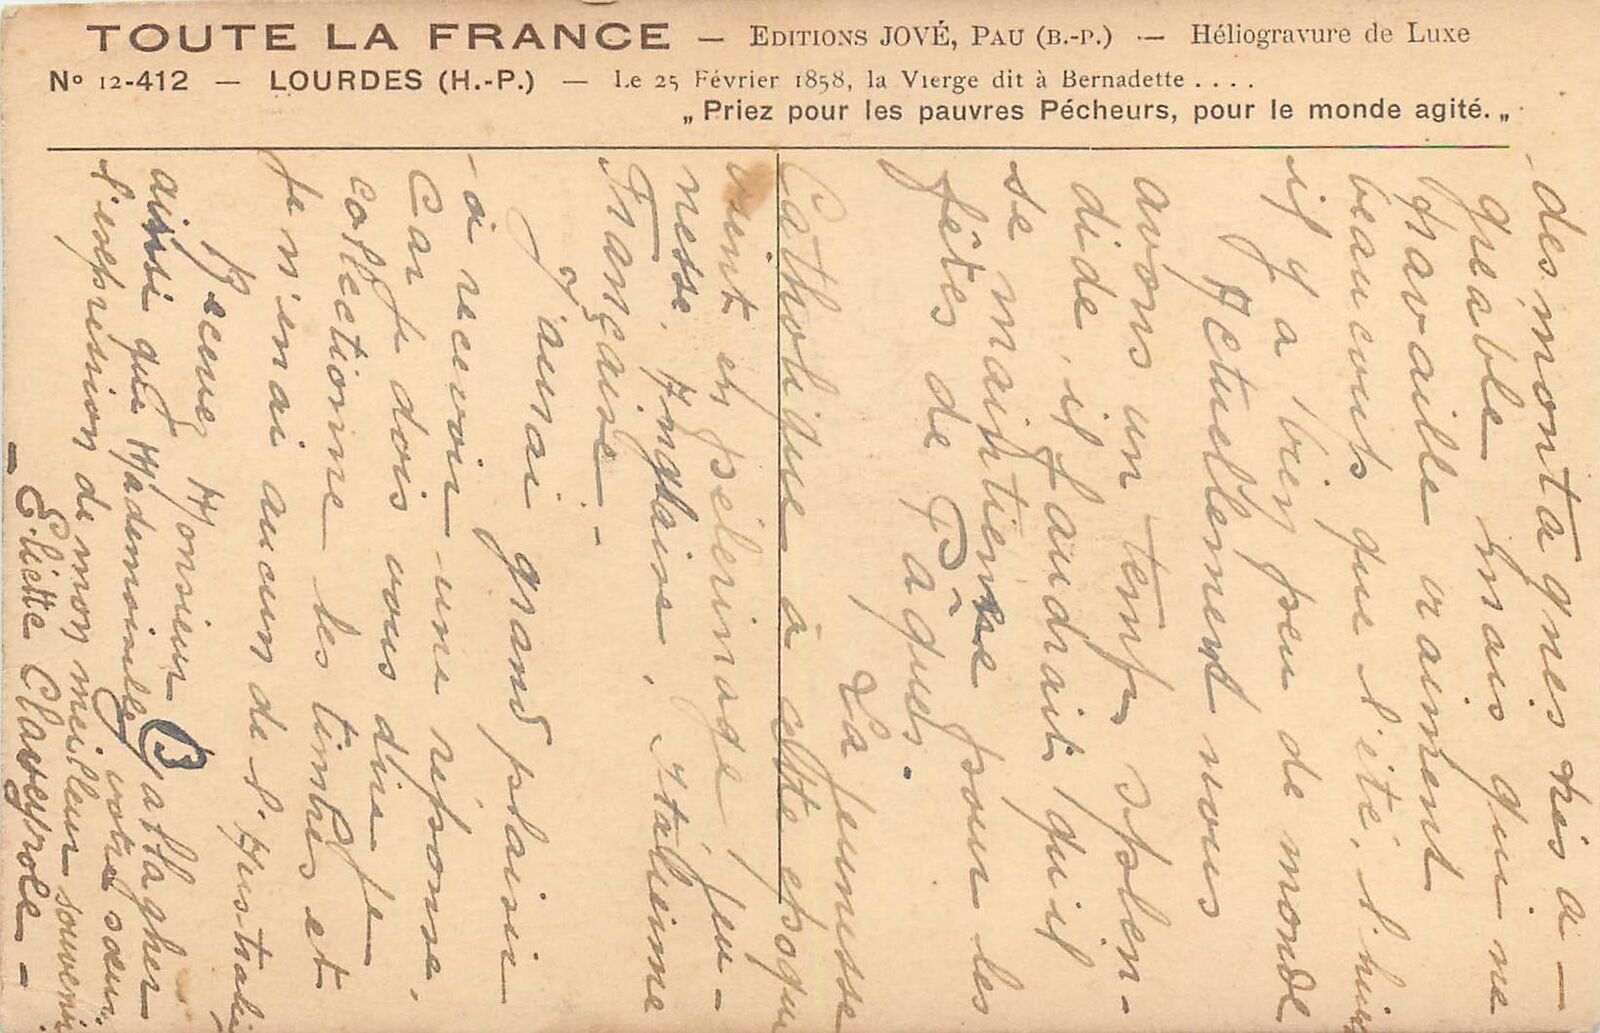 TOUTE LA FRANCE — EDITIONS JOVÉ, PAU (B.-P.) — Héliogravure de Luxe
No 12-412 — LOURDES (H.-P.) — Le 25 Février 1858, la Vierge dit à Bernadette . . . .
„ Priez pour les pauvres Pécheurs, pour le monde agité. „
des montagnes très a-
gréable mais qui ne
travaille vraiment
beaucoup que l'été, l'hiver
il y a bien peu de monde
Actuellement nous
avons un temps splen-
dide, il faudrait qu'il
se maintienne pour les
fêtes de Pâques.
La jeunesse
Catholique à cette époque
vient en pélerinage, jeu-
nesse, Anglaise, Italienne
Française -
J'aurai grand plaisir
- à recevoir une réponse,
Car je dois vous dire je
collectionne les timbres et
je n'en ai aucun de l'Australie
Recevez Monsieur Ballagher
ainsi que Mademoiselle votre sœur,
l'expression de mon meilleur souvenir
- Eliette Claveyrole -